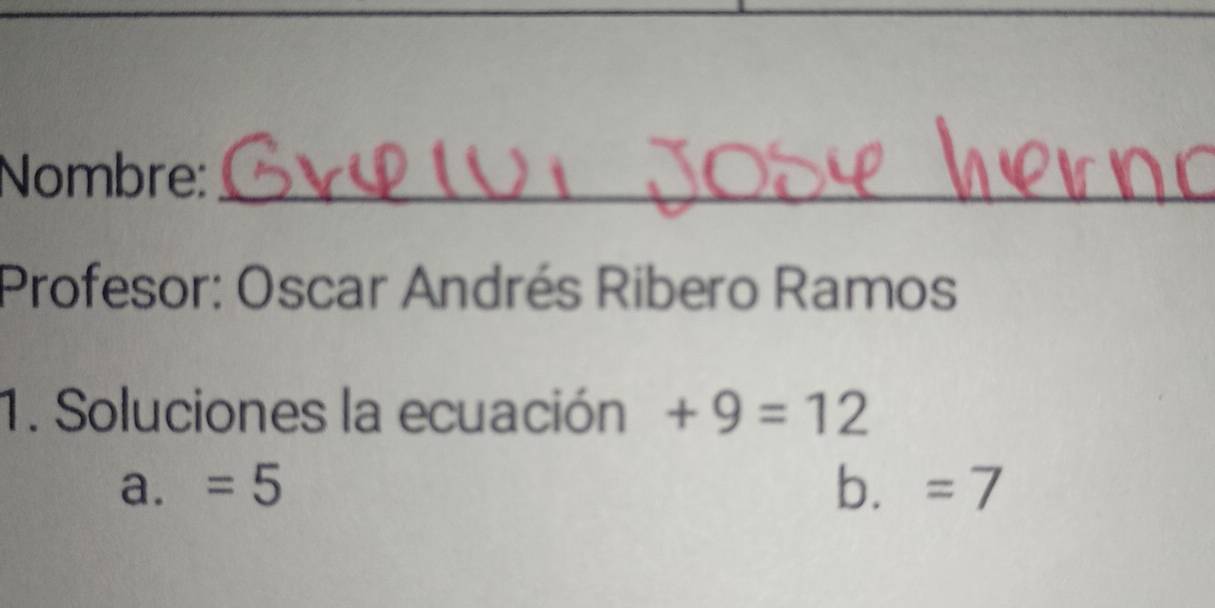 Nombre: Grelvi Jose hernа
Profesor: Oscar Andrés Ribero Ramos
1. Soluciones la ecuación + 9 = 12
a. = 5 b. = 7